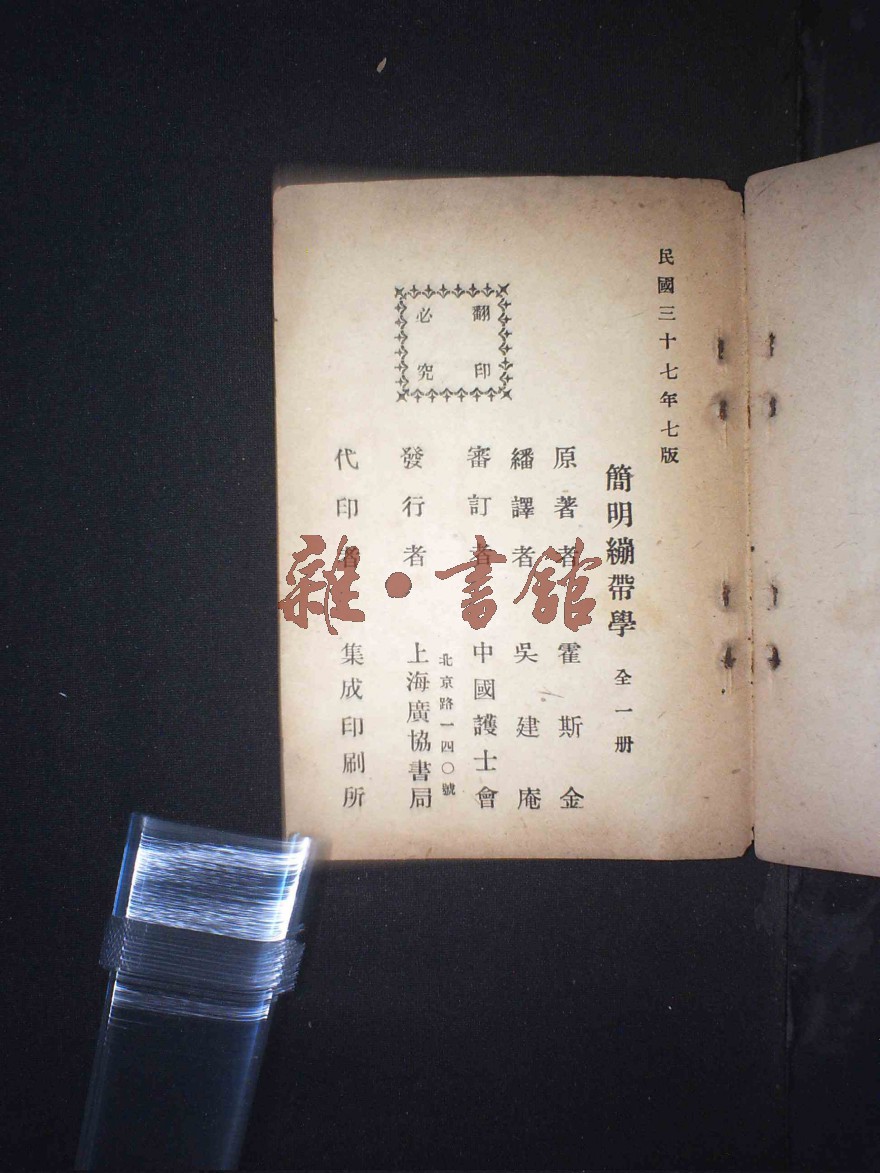 民國三十七年七版
簡明繃帶學 全一册
原著者 霍斯金
繙譯者 吳建庵
審訂者 中國護士會
北京路一四〇號
發行者 上海廣協書局
代印者 集成印刷所
翻印
必究
雜·書館